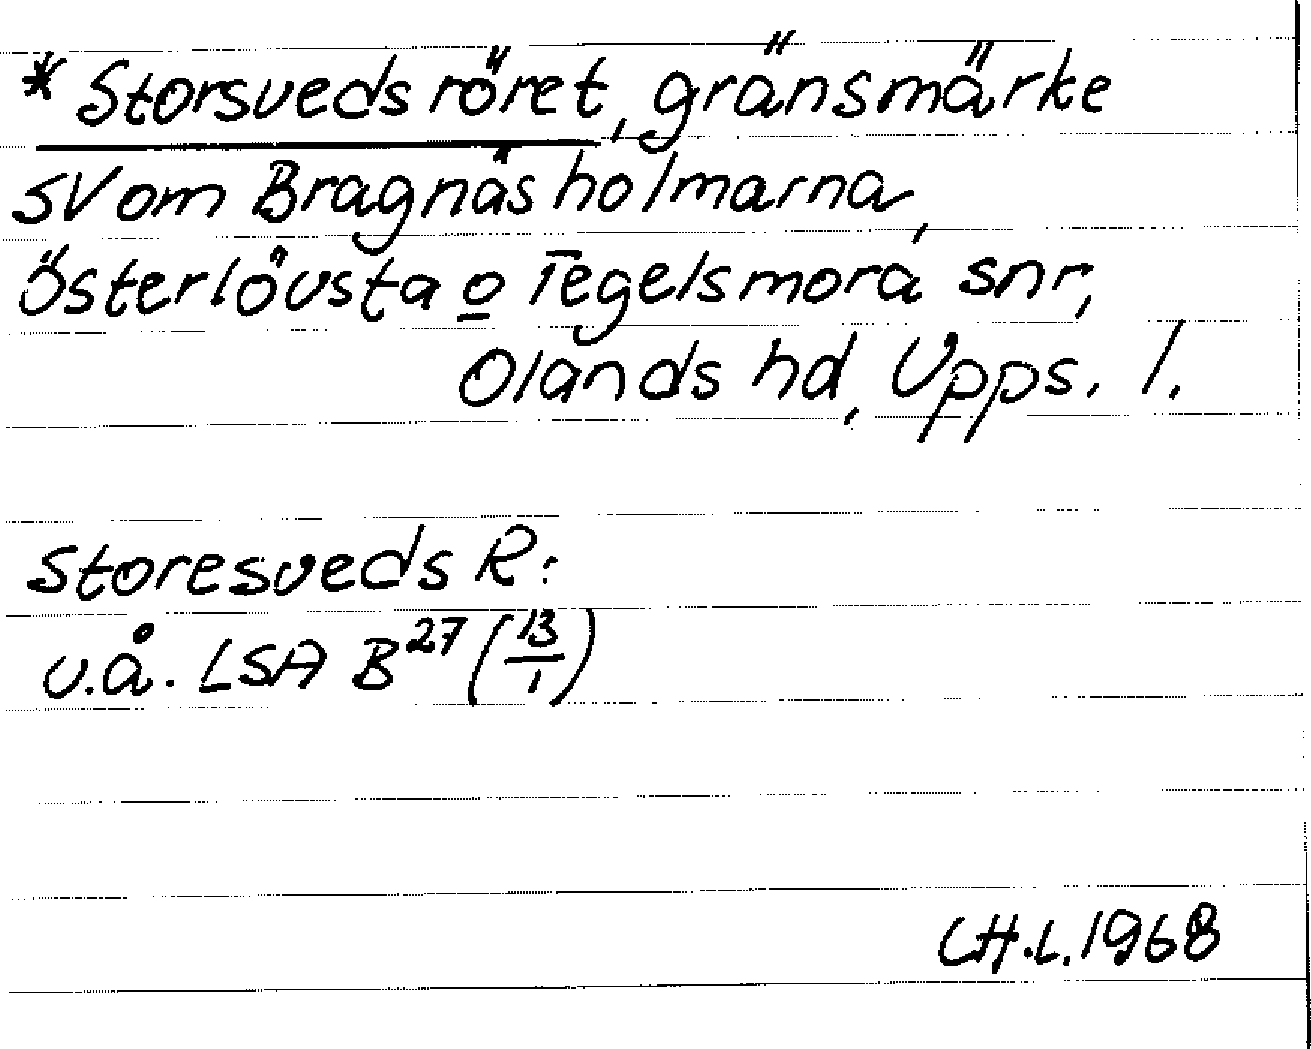 * Storsvedsröret, gränsmärke
SV om Bragnäsholmarna,
Österlövsta o Tegelsmora snr,
Olands hd, Upps. l.
Storesveds R:
u.å. LSA B²⁷ (13/1)
CH.L. 1968